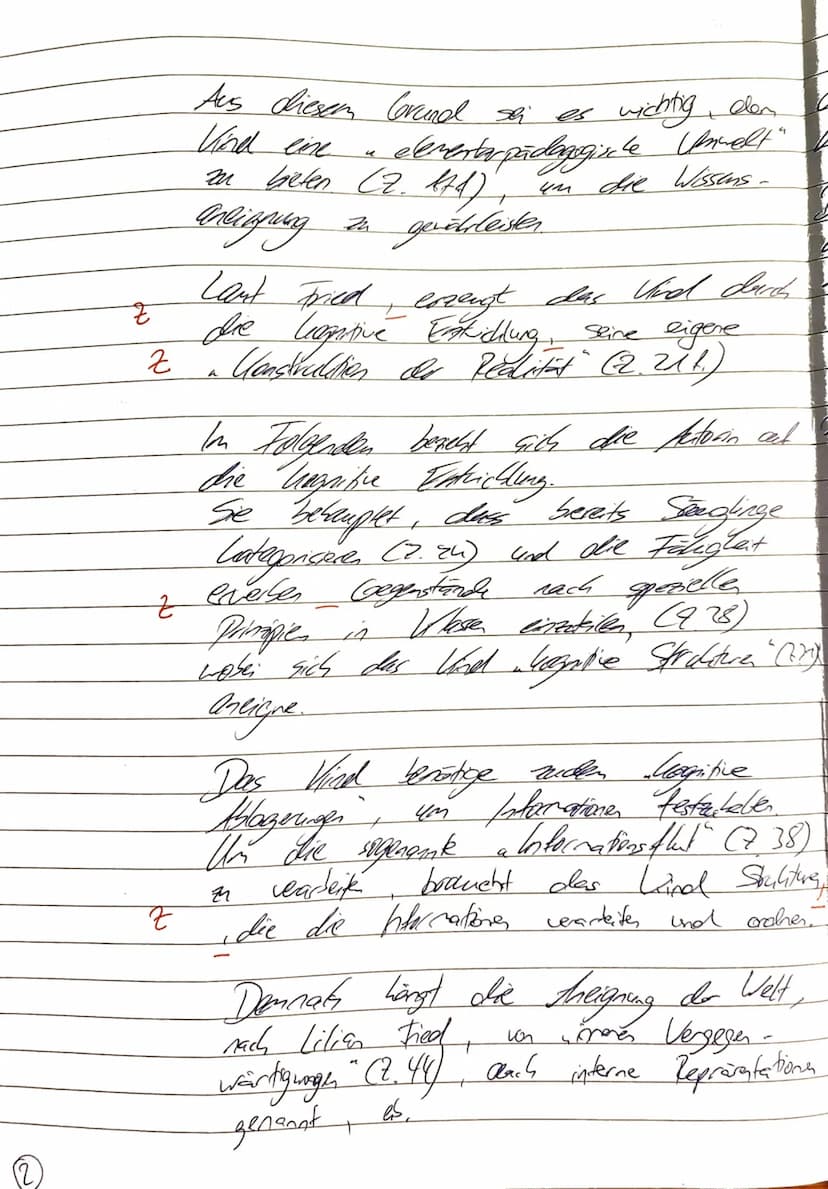 Aus diesem Grund sei es wichtig, dem
Kind eine „elementarpädagogische Umwelt"
zu bieten (Z. 171), um die Wissens-
aneignung zu gewährleisten.
Laut Fried, erzeugt das Kind durch
Z
die kognitive Entwicklung, seine eigene
Z
„Konstruktion der Realität" (Z. 21f.)
Im Folgenden bezieht sich die Autorin auf
die kognitive Entwicklung.
Sie behauptet, dass bereits Säuglinge
kategorisieren (Z. 24) und die Fähigkeit
Z
erwerben Gegenstände nach speziellen
Prinzipien in Klassen einzuteilen, (Z 28)
wobei sich das Kind „kognitive Strukturen"
aneigne.
Das Kind benötige zudem „kognitive
Ablagerungen", um Informationen festzuhalten.
Um die sogenannte „Informationsflut" (Z. 38)
zu verarbeiten, braucht das Kind Strukturen,
Z
, die die Informationen verarbeiten und ordnen.
Demnach hängt die Aneignung der Welt,
nach Lilian Fried, von „inneren Vergegen-
wärtigungen" (Z. 44), auch interne Repräsentationen
genannt, ab.
2